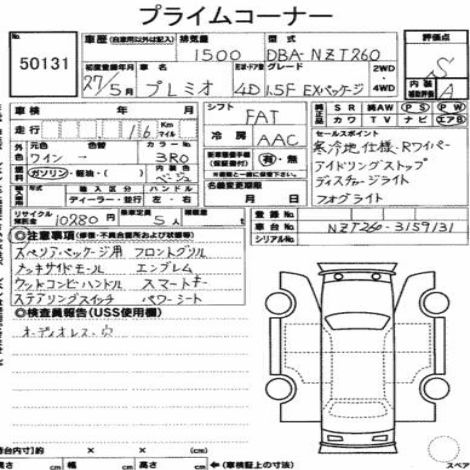 プライムコーナー
No. 50131
車歴 (自家用以外は記入) 排気量 1500 型式 DBA-NZT260 評価点 S
初度登録年月 27/5月 車名 プレミオ 形状・ドア数 4D グレード 1.5F EXパッケージ 2WD・4WD 内装補助評価 A
車検 年 月 シフト FAT 純正品 SR 純AW PS PW
走行 16 Km マイル 冷房 AAC カワ TV ナビ エアB
外色 元色 ワイン 色替 カラーNo. 3R0 セールスポイント
ガソリン・軽油・( ) 内装色 ベージュ 有・無 寒冷地仕様・Rワイパー
輸入車 年式 輸入区分 ディーラー・並行 ハンドル 左・右 名義変更期限 月 日 アイドリングストップ
ディスチャージライト
フォグライト
リサイクル預託金 10980円 乗車定員 5人 積載量 登録No.
車台No. NZT260-3159131
シリアルNo.
◎注意事項 (修復・不具合箇所および状態等)
スペリアパッケージ用 フロントグリル
メッキサイドモール エンブレム
ウッドコンビハンドル スマートキー
ステアリングスイッチ パワーシート
◎検査員報告(USS使用欄)
オーディオレス・穴
荷台内寸 × × (cm)
幅 cm 高さ cm ←(車検証上の寸法)
スペア